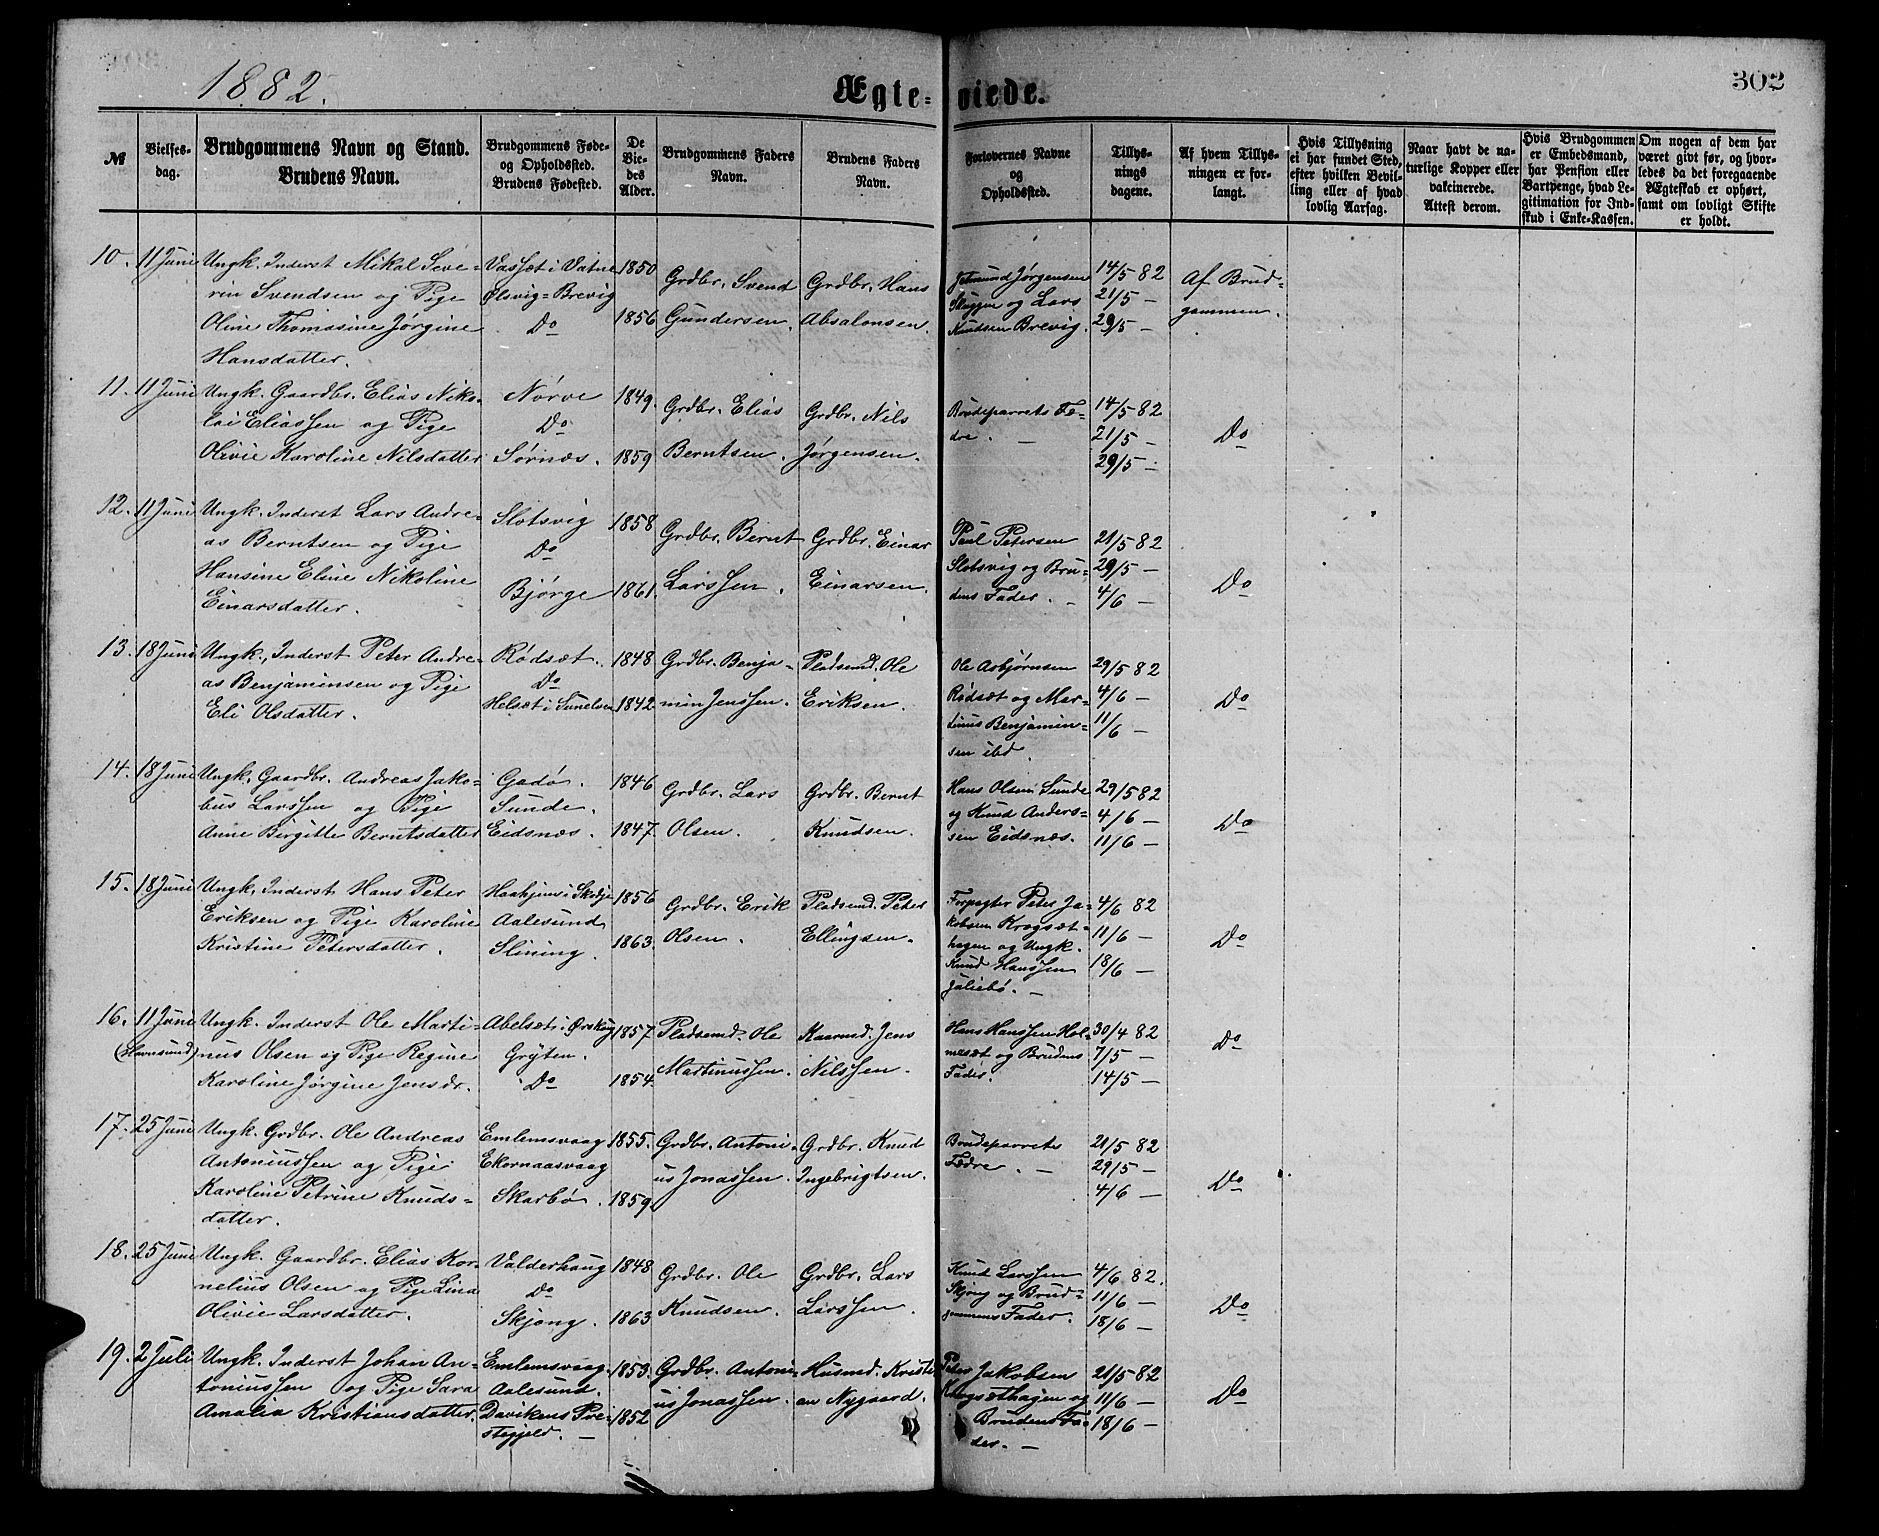 1882.
Ægte=viede.
302
№
Vielses-
dag.
Brudgommens Navn og Stand.
Brudens Navn.
Brudgommens Føde-
og Opholdssted.
Brudens Fødested.
De
Vie-
des
Alder.
Brudgommens Faders
Navn.
Brudens Faders
Navn.
Forlovernes Navne
og
Opholdssted.
Tillys-
nings
dagene.
Af hvem Tillys-
ningen er for-
langt.
Hvis Tillysning
ei har fundet Sted,
efter hvilken Bevil-
ling eller af hvad
lovlig Aarsag.
Naar havt de na-
turlige Kopper eller
vakcinerede.
Attest derom.
Hvis Brudgommen
er Embedsmand,
har Pension eller
Vartpenge, hvad Le-
gitimation for Ind-
skud i Enke-Kassen.
Om nogen af dem har
været givt før, og hvor-
ledes da det foregaaende
Ægteskab er ophørt,
samt om lovligt Skifte
er holdt.
10. 11 Juni
Ungk. Inderst Mikal Seve-
rin Svendsen og Pige
Oline Thomasine Jørgine
Hansdatter.
Vassæt i Vatne
Ølsvig=Brevig
Do
1850
1856
Grdbr. Svend
Gundersen.
Grdbr. Hans
Absalonsen.
Jetmund Jørgensen
Skuggen og Lars
Knudsen Brevig.
14/5 82
21/5 —
29/5 —
Af Brud-
gommen.
11. 11 Juni
Ungk. Gaardbr. Elias Niko-
lai Eliassen og Pige
Olivie Karoline Nilsdatter
Nørve
Do
Sørnæs.
1849.
1859
Grdbr. Elias
Berntsen.
Grdbr. Nils
Jørgensen.
Brudeparrets Fæ-
dre. —
14/5 82
21/5 —
29/5 —
Do
12. 11 Juni
Ungk. Inderst Lars Andre-
as Berntsen og Pige
Hansine Eline Nikoline
Einarsdatter.
Slotsvig
Do
Bjørge
1858
1861.
Grdbr. Bernt
Larssen.
Grdbr. Einar
Einarsen.
Paul Petersen
Slotsvig og Bru-
dens Fader. —
21/5 82
29/5 —
4/6 —
Do
13. 18 Juni
Ungk., Inderst Peter Andre-
as Benjaminsen og Pige
Eli Olsdatter.
Rødsæt.
Do
Helsæt i Sunelven
1848.
1842
Grdbr. Benja-
min Jenssen.
Pladsmd. Ole
Eriksen.
Ole Asbjørnsen
Rødsæt og Mar-
tinus Benjamin-
sen ibd.
29/5 82
4/6 —
11/6 —
Do
14. 18 Juni
Ungk. Gaardbr. Andreas Jako-
bus Larssen og Pige
Anne Birgitte Berntsdatter
Gødø.
Sunde.
Eidsnæs.
1846
1847.
Grdbr. Lars
Olsen.
Grdbr. Bernt
Knudsen.
Hans Olsen Sunde
og Knud Anders-
sen Eidsnæs.
29/5 82
4/6 —
11/6 —
Do
15. 18 Juni
Ungk, Inderst Hans Peter
Eriksen og Pige Karoline
Kristine Petersdatter.
Haahjem i Skodje
Aalesund
Slining.
1856
1863.
Grdbr. Erik
Olsen.
Pladsmd. Peter
Ellingsen.
Forpagter Peter Ja-
kobsen Krogsæt-
hagen og Ungk.
Knud Hanssen
4/6 82
11/6 —
18/6 —
Do
16. 11 Juni
Ungk. Inderst Ole Marti-
nus Olsen og Pige Regine
Karoline Jørgine Jensdr.
Abelsæt i Ørskog
Gryten.
Do
1857.
1854.
Pladsmd. Ole
Martinussen.
Kaarmd. Jens
Nilssen.
Hans Hanssen Hol-
mesæt og Brudens
Fader.
30/4 82
7/5 —
14/5 —
Do
17. 25 Juni
Ungk. Grdbr. Ole Andreas
Antoniussen og Pige
Karoline Petrine Knuds-
datter.
Emlemsvaag
Ekornaasvaag
Skarbø.
1855.
1859.
Grdbr. Antoni-
us Jonassen.
Grdbr. Knud
Ingebrigtsen.
Brudeparrets
Fædre. —
21/5 82
29/5 —
4/6 —
Do
18. 25 Juni
Ungk. Gaardbr. Elias Kor-
nelius Olsen og Pige Lina
Olivie Larsdatter.
Valderhaug
Do
Skjong.
1848
1863
Grdbr. Ole
Knudsen.
Grdbr. Lars
Larssen.
Knud Larssen
Skjong og Brud-
gommens Fader.
4/6 82.
11/6 —
18/6 —
Do
19. 2 Juli
Ungk. Inderst Johan An-
toniussen og Pige Sara
Amalia Kristiansdatter.
Emlemsvaag.
Aalesund.
Davikens Præ-
stegjeld. —
1853.
1852
Grdbr. Antoni-
us Jonassen.
Husmd. Kristi-
an Nygaard.
Peter Jakobsen
Krogsæthagen og
Brudens Fa-
der. —
21/5 82
11/6 —
18/6 —
Do